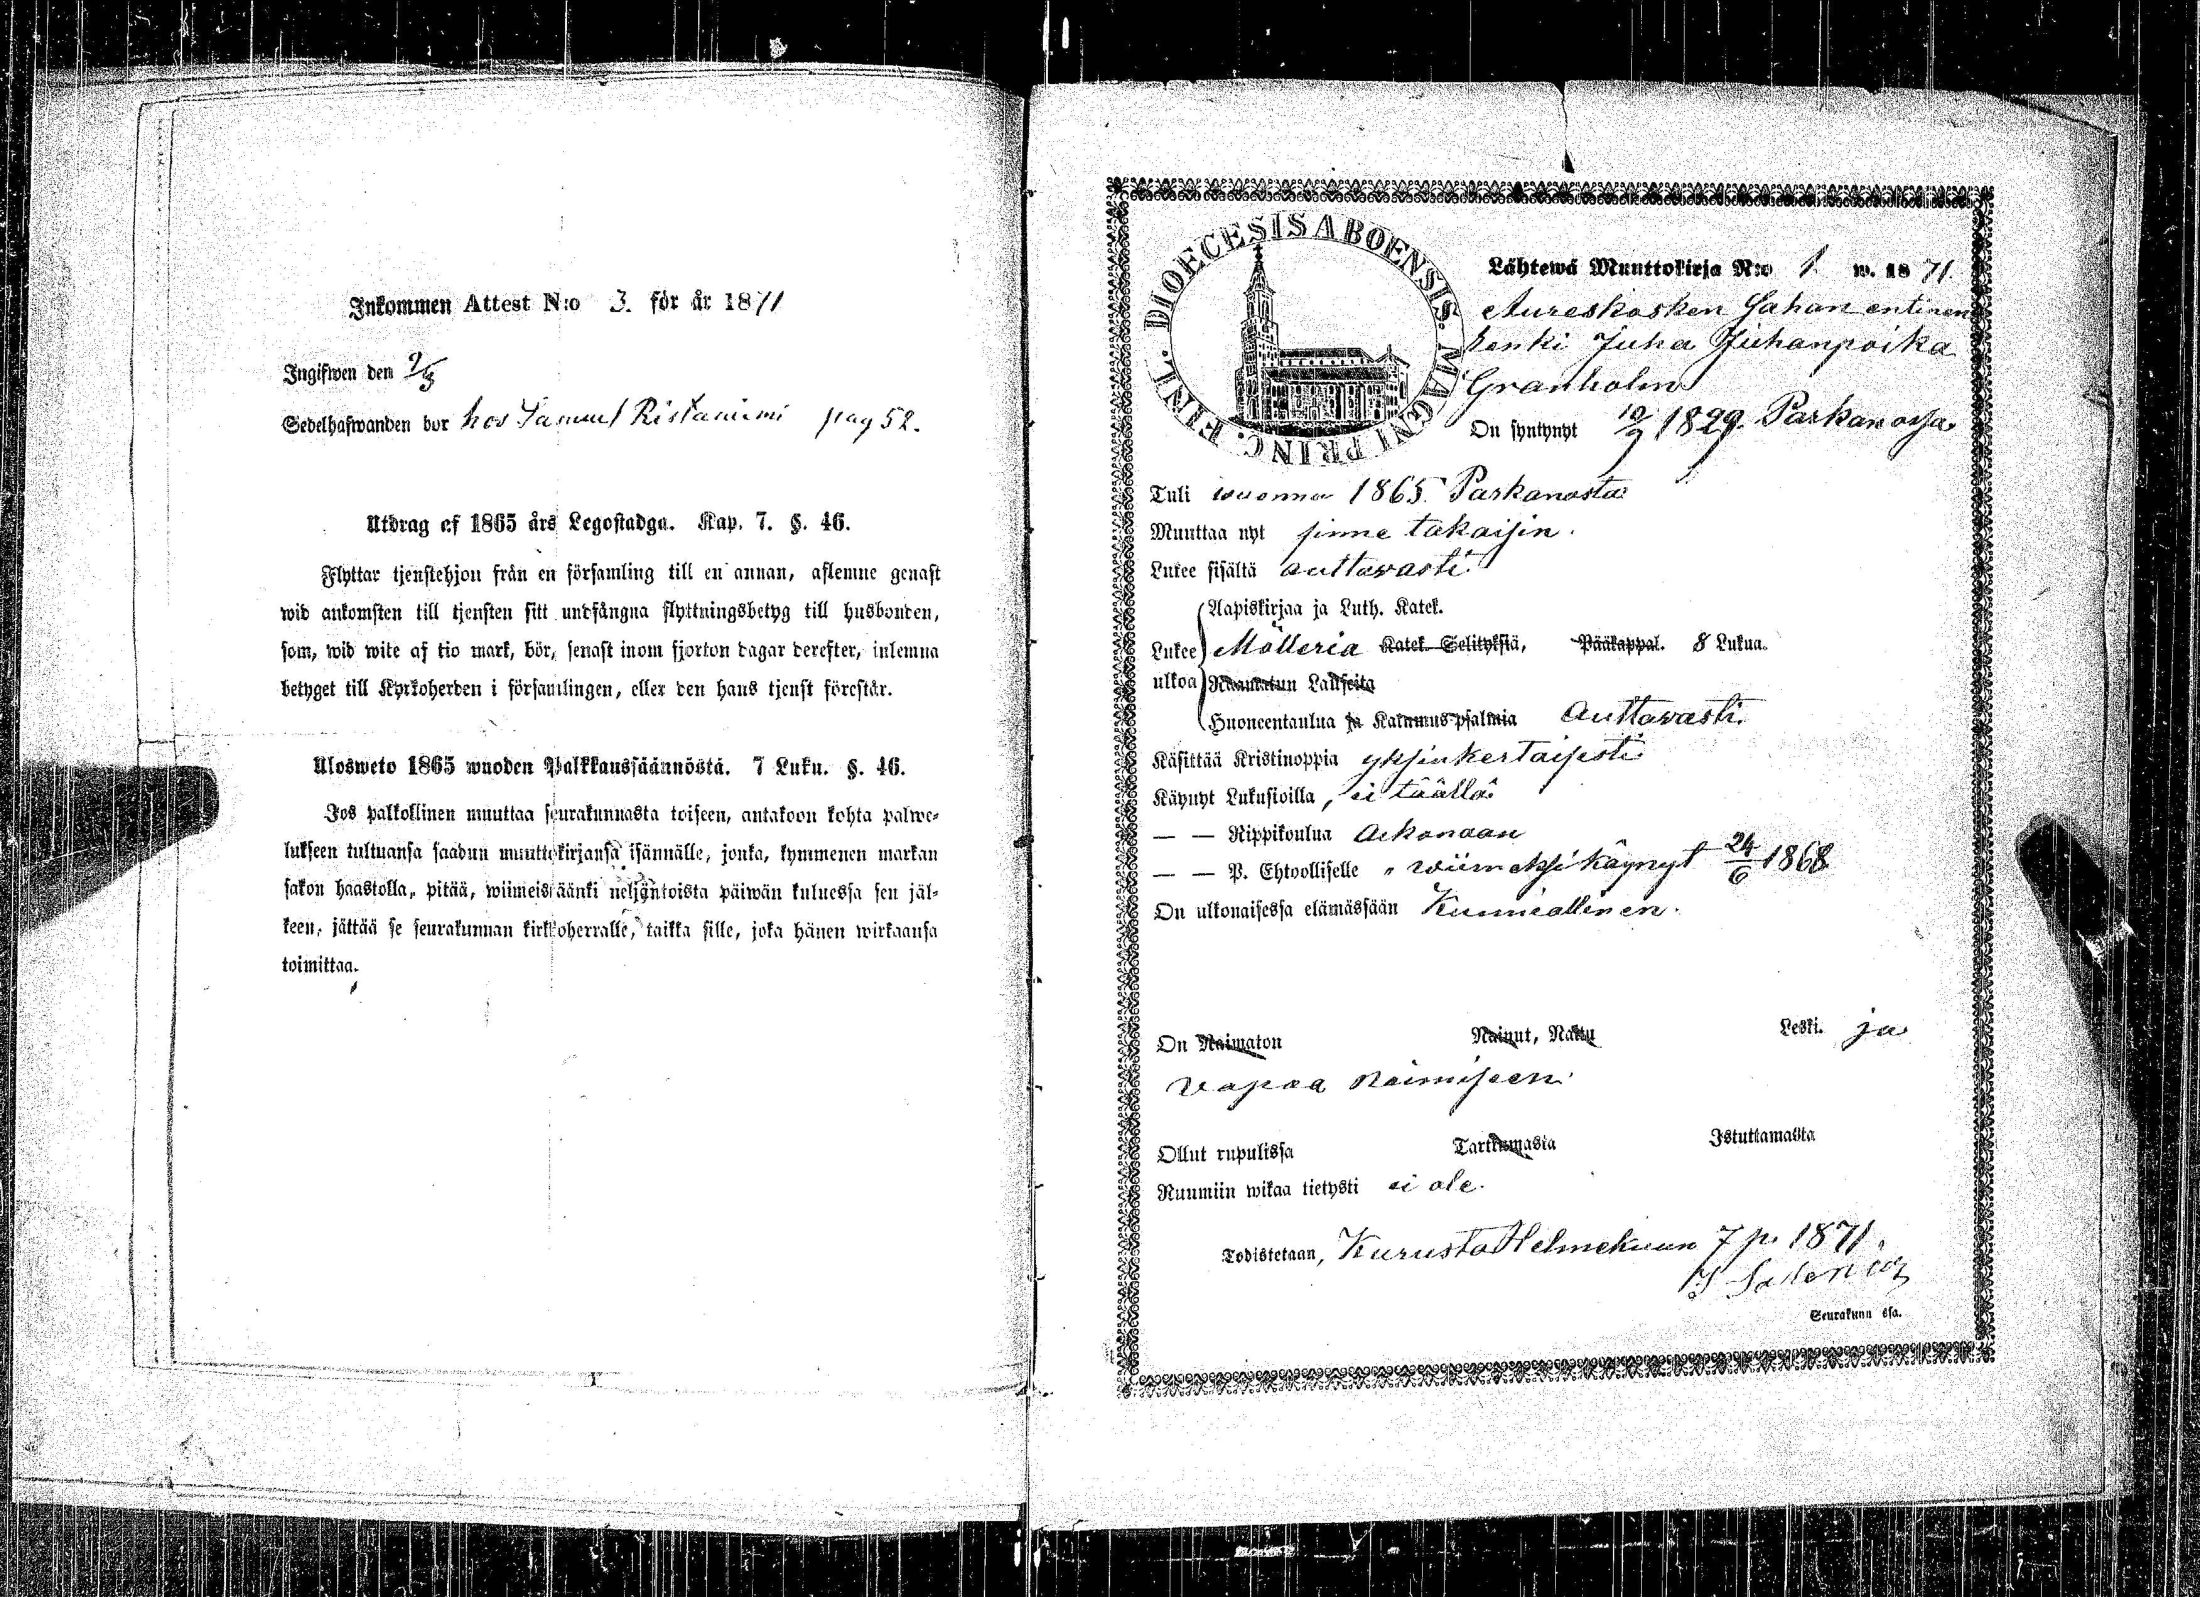 Inkommen Attest N:o 3. för år 1871
Ingifwen den 9/3
Sedelhafwanden bor hos Samuel Ristaniemi pag 52.
Utdrag af 1865 års Legostadga. Kap. 7. §. 46.
Flyttar tjenstehjon från en församling till en annan, aflemne genast
wid ankomsten till tjensten sitt undfångna flyttningsbetyg till husbonden,
som, wid wite af tio mark, bör, senast inom fjorton dagar derefter, inlemna
betyget till Kyrkoherden i församlingen, eller den hans tjenst förestår.
Ulosweto 1865 wuoden Palkkaussäännöstä. 7 Luku. §. 46.
Jos palkollinen muuttaa seurakunnasta toiseen, antakoon kohta palwe-
lukseen tultuansa saadun muuttokirjansa isännälle, jonka, kymmenen markan
sakon haastolla, pitää, wiimeistäänki neljäntoista päiwän kuluessa sen jäl-
keen, jättää se seurakunnan kirkkoherralle, taikka sille, joka hänen wirkaansa
toimittaa.
DIOECESIS ABOENSIS. MAGNI PRINC. FINL.
Lähtewä Muuttokirja N:o 1 w. 1871.
Aureskosken Sahan entinen
renki Juha Juhanpoika
Granholm
On syntynyt 10/9 1829. Parkanossa
Tuli wuonna 1865 Parkanosta
Muuttaa nyt sinne takaisin.
Lukee sisältä auttawasti
Aapiskirjaa ja Luth. Katek.
Lukee Mölleria Katek. Selityksiä, Pääkappal. 8 Lukua.
ulkoa Raamatun Lauseita
Huoneentaulua ja Katumus psalmia Auttawasti.
Käsittää Kristinoppia yksinkertaisesti
Käynyt Lukusioilla, ei täällä
— — Rippikoulua Aikanaan
— — P. Ehtoolliselle " wiimeksi käynyt 24/6 1868
On ulkonaisessa elämässään Kunniallinen.
On Naimaton Nainut, Naitu Leski. ja
vapaa Naimiseen.
Ollut rupulissa Tarttumasta Istuttamasta
Ruumiin wikaa tietysti ei ole.
Todistetaan, Kurusta Helmekuun 7 p. 1871.
Seurakunn ssa.